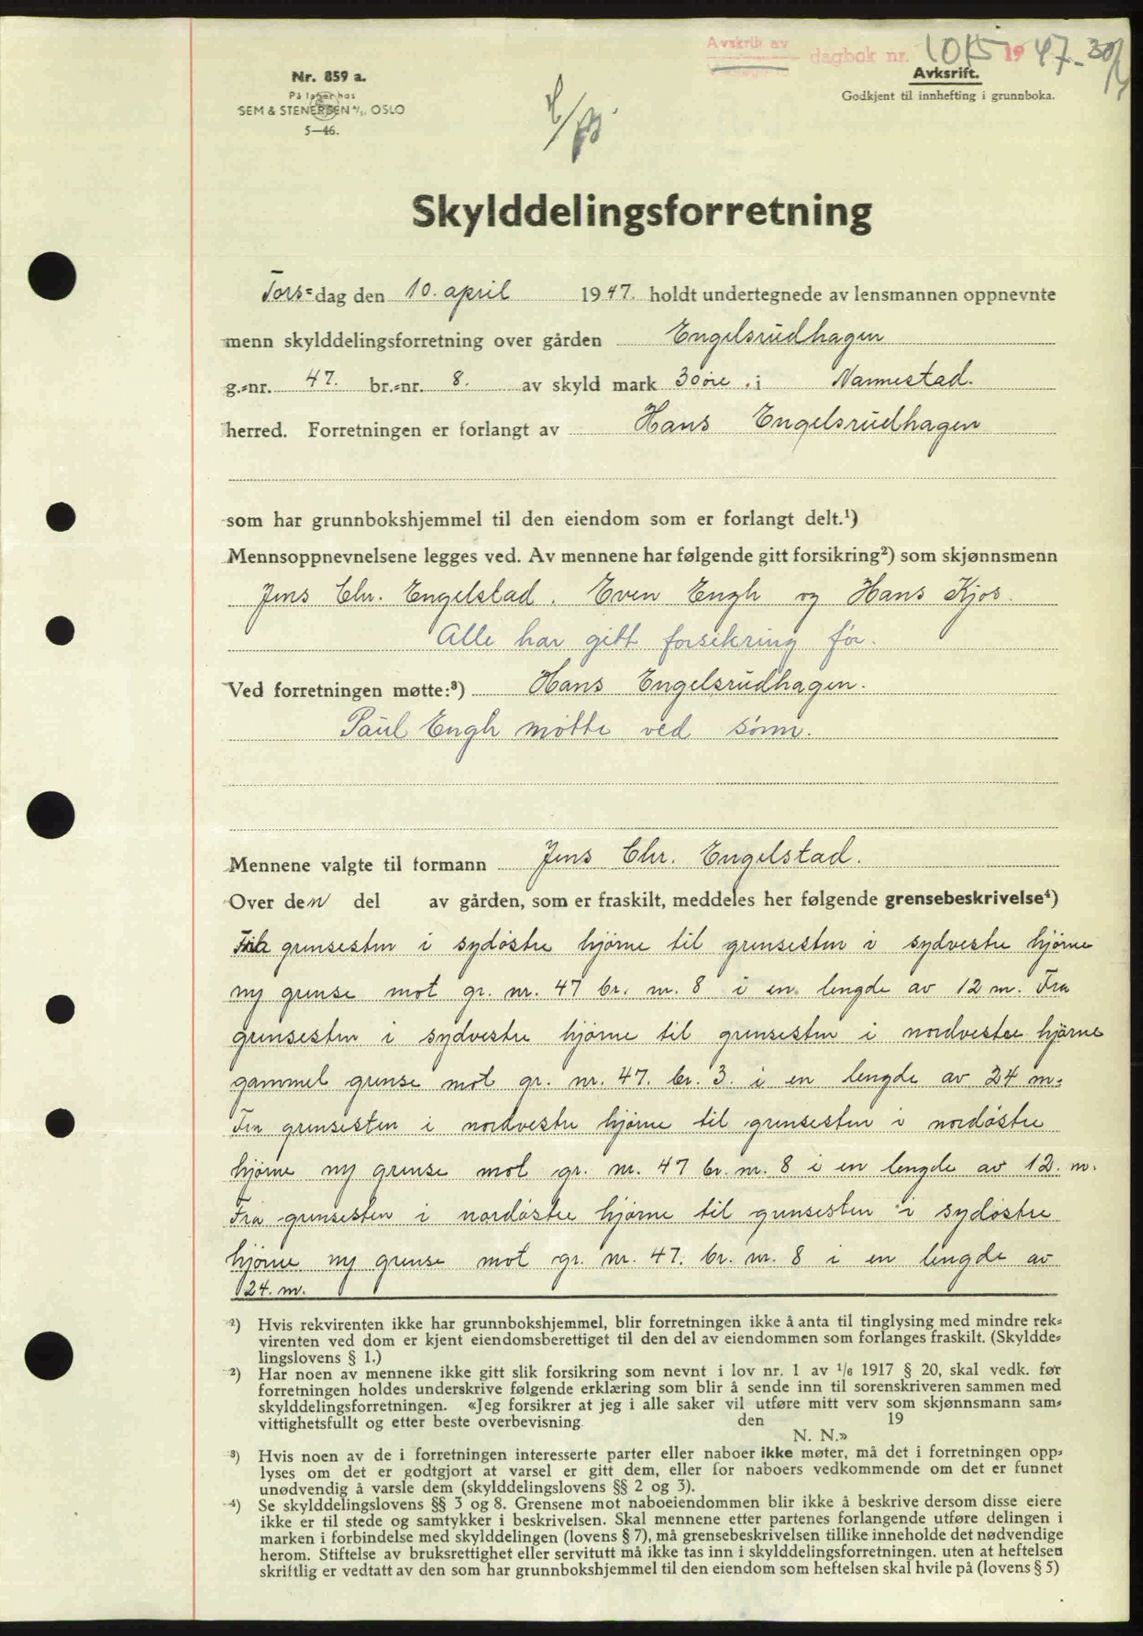 Avskrift av
dagbok nr. 1015 1947-30/4
Nr. 859 a.
På lager hos
SEM & STENERSEN A/S, OSLO
5—46.
Avksrift.
Godkjent til innhefting i grunnboka.
Skylddelingsforretning
Tors-dag den 10. april 1947. holdt undertegnede av lensmannen oppnevnte
menn skylddelingsforretning over gården Engelsrudhagen
g.-nr. 47. br.-nr. 8. av skyld mark 30 øre . i Nannestad.
herred. Forretningen er forlangt av Hans Engelsrudhagen
som har grunnbokshjemmel til den eiendom som er forlangt delt.¹)
Mennsoppnevnelsene legges ved. Av mennene har følgende gitt forsikring²) som skjønnsmenn
Jens Chr. Engelstad. Even Engh og Hans Kjos.
Alle har gitt forsikring før.
Ved forretningen møtte:³) Hans Engelsrudhagen.
Paul Engh møtte ved sønn.
Mennene valgte til formann Jens Chr. Engelstad.
Over den del av gården, som er fraskilt, meddeles her følgende grensebeskrivelse⁴)
Fra grensesten i sydøstre hjørne til grensesten i sydvestre hjørne
ny grense mot gr. nr. 47 br. nr. 8 i en lengde av 12 m. Fra
grensesten i sydvestre hjørne til grensesten i nordvestre hjørne
gammel grense mot gr. nr. 47. br. 3. i en lengde av 24 m.
Fra grensesten i nordvestre hjørne til grensesten i nordøstre
hjørne ny grense mot gr. nr. 47 br. nr. 8 i en lengde av 12. m.
Fra grensesten i nordøstre hjørne til grensesten i sydøstre
hjørne ny grense mot gr. nr. 47. br. nr. 8 i en lengde av
24. m.
¹) Hvis rekvirenten ikke har grunnbokshjemmel, blir forretningen ikke å anta til tinglysing med mindre rek-
virenten ved dom er kjent eiendomsberettiget til den del av eiendommen som forlanges fraskilt. (Skyldde-
lingslovens § 1.)
²) Har noen av mennene ikke gitt slik forsikring som nevnt i lov nr. 1 av 1/6 1917 § 20, skal vedk. før
forretningen holdes underskrive følgende erklæring som blir å sende inn til sorenskriveren sammen med
skylddelingsforretningen. «Jeg forsikrer at jeg i alle saker vil utføre mitt verv som skjønnsmann sam-
vittighetsfullt og etter beste overbevisning den 19
N. N.»
³) Hvis noen av de i forretningen interesserte parter eller naboer ikke møter, må det i forretningen opp-
lyses om det er godtgjort at varsel er gitt dem, eller for naboers vedkommende om det er funnet
unødvendig å varsle dem (skylddelingslovens §§ 2 og 3).
⁴) Se skylddelingslovens §§ 3 og 8. Grensene mot naboeiendommen blir ikke å beskrive dersom disse eiere
ikke er til stede og samtykker i beskrivelsen. Skal mennene etter partenes forlangende utføre delingen i
marken i forbindelse med skylddelingen (lovens § 7), må grensebeskrivelsen tillike inneholde det nødvendige
herom. Stiftelse av bruksrettighet eller servitutt må ikke tas inn i skylddelingsforretningen. uten at heftelsen
skriftlig er vedtatt av den som har grunnbokshjemmel til den eiendom som heftelsen skal hvile på (lovens § 5)